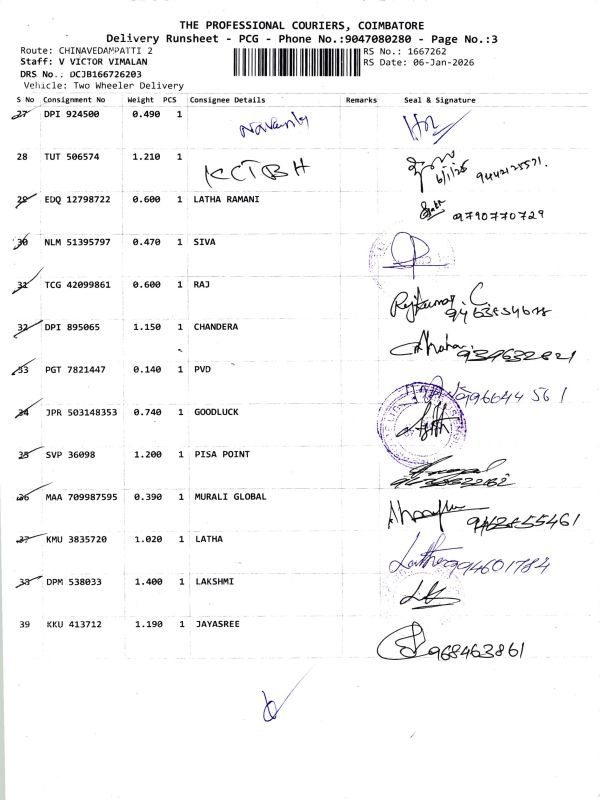 THE PROFESSIONAL COURIERS, COIMBATORE
Delivery Runsheet - PCG - Phone No.:9047080280 - Page No.:3
Route: CHINAVEDAMPATTI 2 RS No.: 1667262
Staff: V VICTOR VIMALAN RS Date: 06-Jan-2026
DRS No.: DCJB166726203
Vehicle: Two Wheeler Delivery
S No Consignment No Weight PCS Consignee Details Remarks Seal & Signature
27 DPI 924500 0.490 1
28 TUT 506574 1.210 1 KCTBH
6/1/26 9442125571.
29 EDQ 12798722 0.600 1 LATHA RAMANI 9790770729
30 NLM 51395797 0.470 1 SIVA
31 TCG 42099861 0.600 1 RAJ
Rajkumar. C.
32 DPI 895065 1.150 1 CHANDERA
33 PGT 7821447 0.140 1 PVD
34 JPR 503148353 0.740 1 GOODLUCK
35 SVP 36098 1.200 1 PISA POINT
36 MAA 709987595 0.390 1 MURALI GLOBAL
9462855461
37 KMU 3835720 1.020 1 LATHA
94601784
38 DPM 538033 1.400 1 LAKSHMI
39 KKU 413712 1.190 1 JAYASREE
968463861